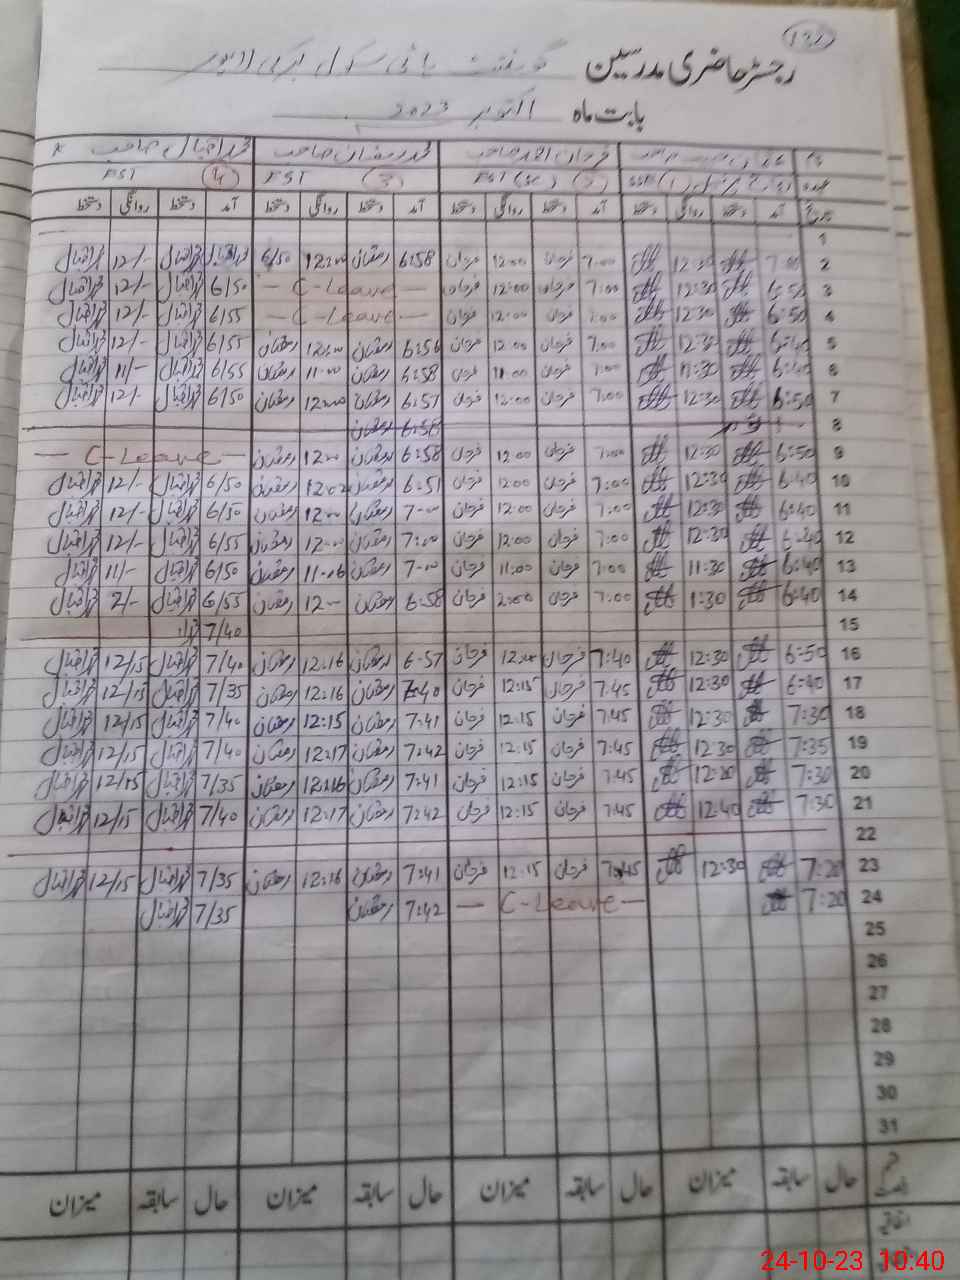 رجسٹر حاضری مدرسین گورنمنٹ ہائی سکول برکی لاہور
بابت ماہ اکتوبر 2023
فرحان احمد صاحب محمد رمضان صاحب محمد اقبال صاحب
(1) EST (SC) (2) EST (3) EST (4)
تاریخ آمد دستخط روانگی دستخط آمد دستخط روانگی دستخط آمد دستخط روانگی دستخط آمد دستخط روانگی دستخط
1
2 7:00 12:30 7:00 فرحان 12:00 فرحان 6:58 رمضان 12:00 6/50 محمد اقبال محمد اقبال 12/- محمد اقبال
3 6:50 12:30 7:00 فرحان 12:00 فرحان — C-Leave — 6/50 محمد اقبال 12/- محمد اقبال
4 6:50 12:30 7:00 فرحان 12:00 فرحان — C-Leave — 6/55 محمد اقبال 12/- محمد اقبال
5 6:40 12:30 7:00 فرحان 12:00 فرحان 6:56 رمضان 12:00 رمضان 6/55 محمد اقبال 12/- محمد اقبال
6 6:40 11:30 7:00 فرحان 11:00 فرحان 6:58 رمضان 11:00 رمضان 6/55 محمد اقبال 11/- محمد اقبال
7 6:50 12:30 7:00 فرحان 12:00 فرحان 6:57 رمضان 12:00 رمضان 6/50 محمد اقبال 12/- محمد اقبال
8 6:58 رمضان
9 6:50 12:30 7:00 فرحان 12:00 فرحان 6:58 رمضان 12:00 رمضان — C-Leave —
10 6:40 12:30 7:00 فرحان 12:00 فرحان 6:51 رمضان 12:02 رمضان 6/50 محمد اقبال 12/- محمد اقبال
11 6:40 12:30 7:00 فرحان 12:00 فرحان 7:00 رمضان 12:00 رمضان 6/50 محمد اقبال 12/- محمد اقبال
12 6:40 12:30 7:00 فرحان 12:00 فرحان 7:00 رمضان 12:00 رمضان 6/55 محمد اقبال 12/- محمد اقبال
13 6:40 11:30 7:00 فرحان 11:00 فرحان 7:00 رمضان 11:06 رمضان 6/50 محمد اقبال 11/- محمد اقبال
14 6:40 1:30 7:00 فرحان 2:00 فرحان 6:58 رمضان 12:00 رمضان 6/55 محمد اقبال 2/- محمد اقبال
15 7/40
16 6:50 12:30 7:40 فرحان 12:00 فرحان 6:57 رمضان 12:16 رمضان 7/40 محمد اقبال 12/15 محمد اقبال
17 6:40 12:30 7:45 فرحان 12:15 فرحان 7:40 رمضان 12:16 رمضان 7/35 محمد اقبال 12/15 محمد اقبال
18 7:30 12:30 7:45 فرحان 12:15 فرحان 7:41 رمضان 12:15 رمضان 7/40 محمد اقبال 12/15 محمد اقبال
19 7:35 12:30 7:45 فرحان 12:15 فرحان 7:42 رمضان 12:17 رمضان 7/40 محمد اقبال 12/15 محمد اقبال
20 7:30 12:20 7:45 فرحان 12:15 فرحان 7:41 رمضان 12:16 رمضان 7/35 محمد اقبال 12/15 محمد اقبال
21 7:30 12:40 7:45 فرحان 12:15 فرحان 7:42 رمضان 12:17 رمضان 7/40 محمد اقبال 12/15 محمد اقبال
22
23 7:20 12:30 7:45 فرحان 12:15 فرحان 7:41 رمضان 12:16 رمضان 7/35 محمد اقبال 12/15 محمد اقبال
24 7:20 — C-Leave — 7:42 رمضان 7/35 محمد اقبال
25
26
27
28
29
30
31
حال سابقہ میزان حال سابقہ میزان حال سابقہ میزان حال سابقہ میزان
24-10-23 10:40